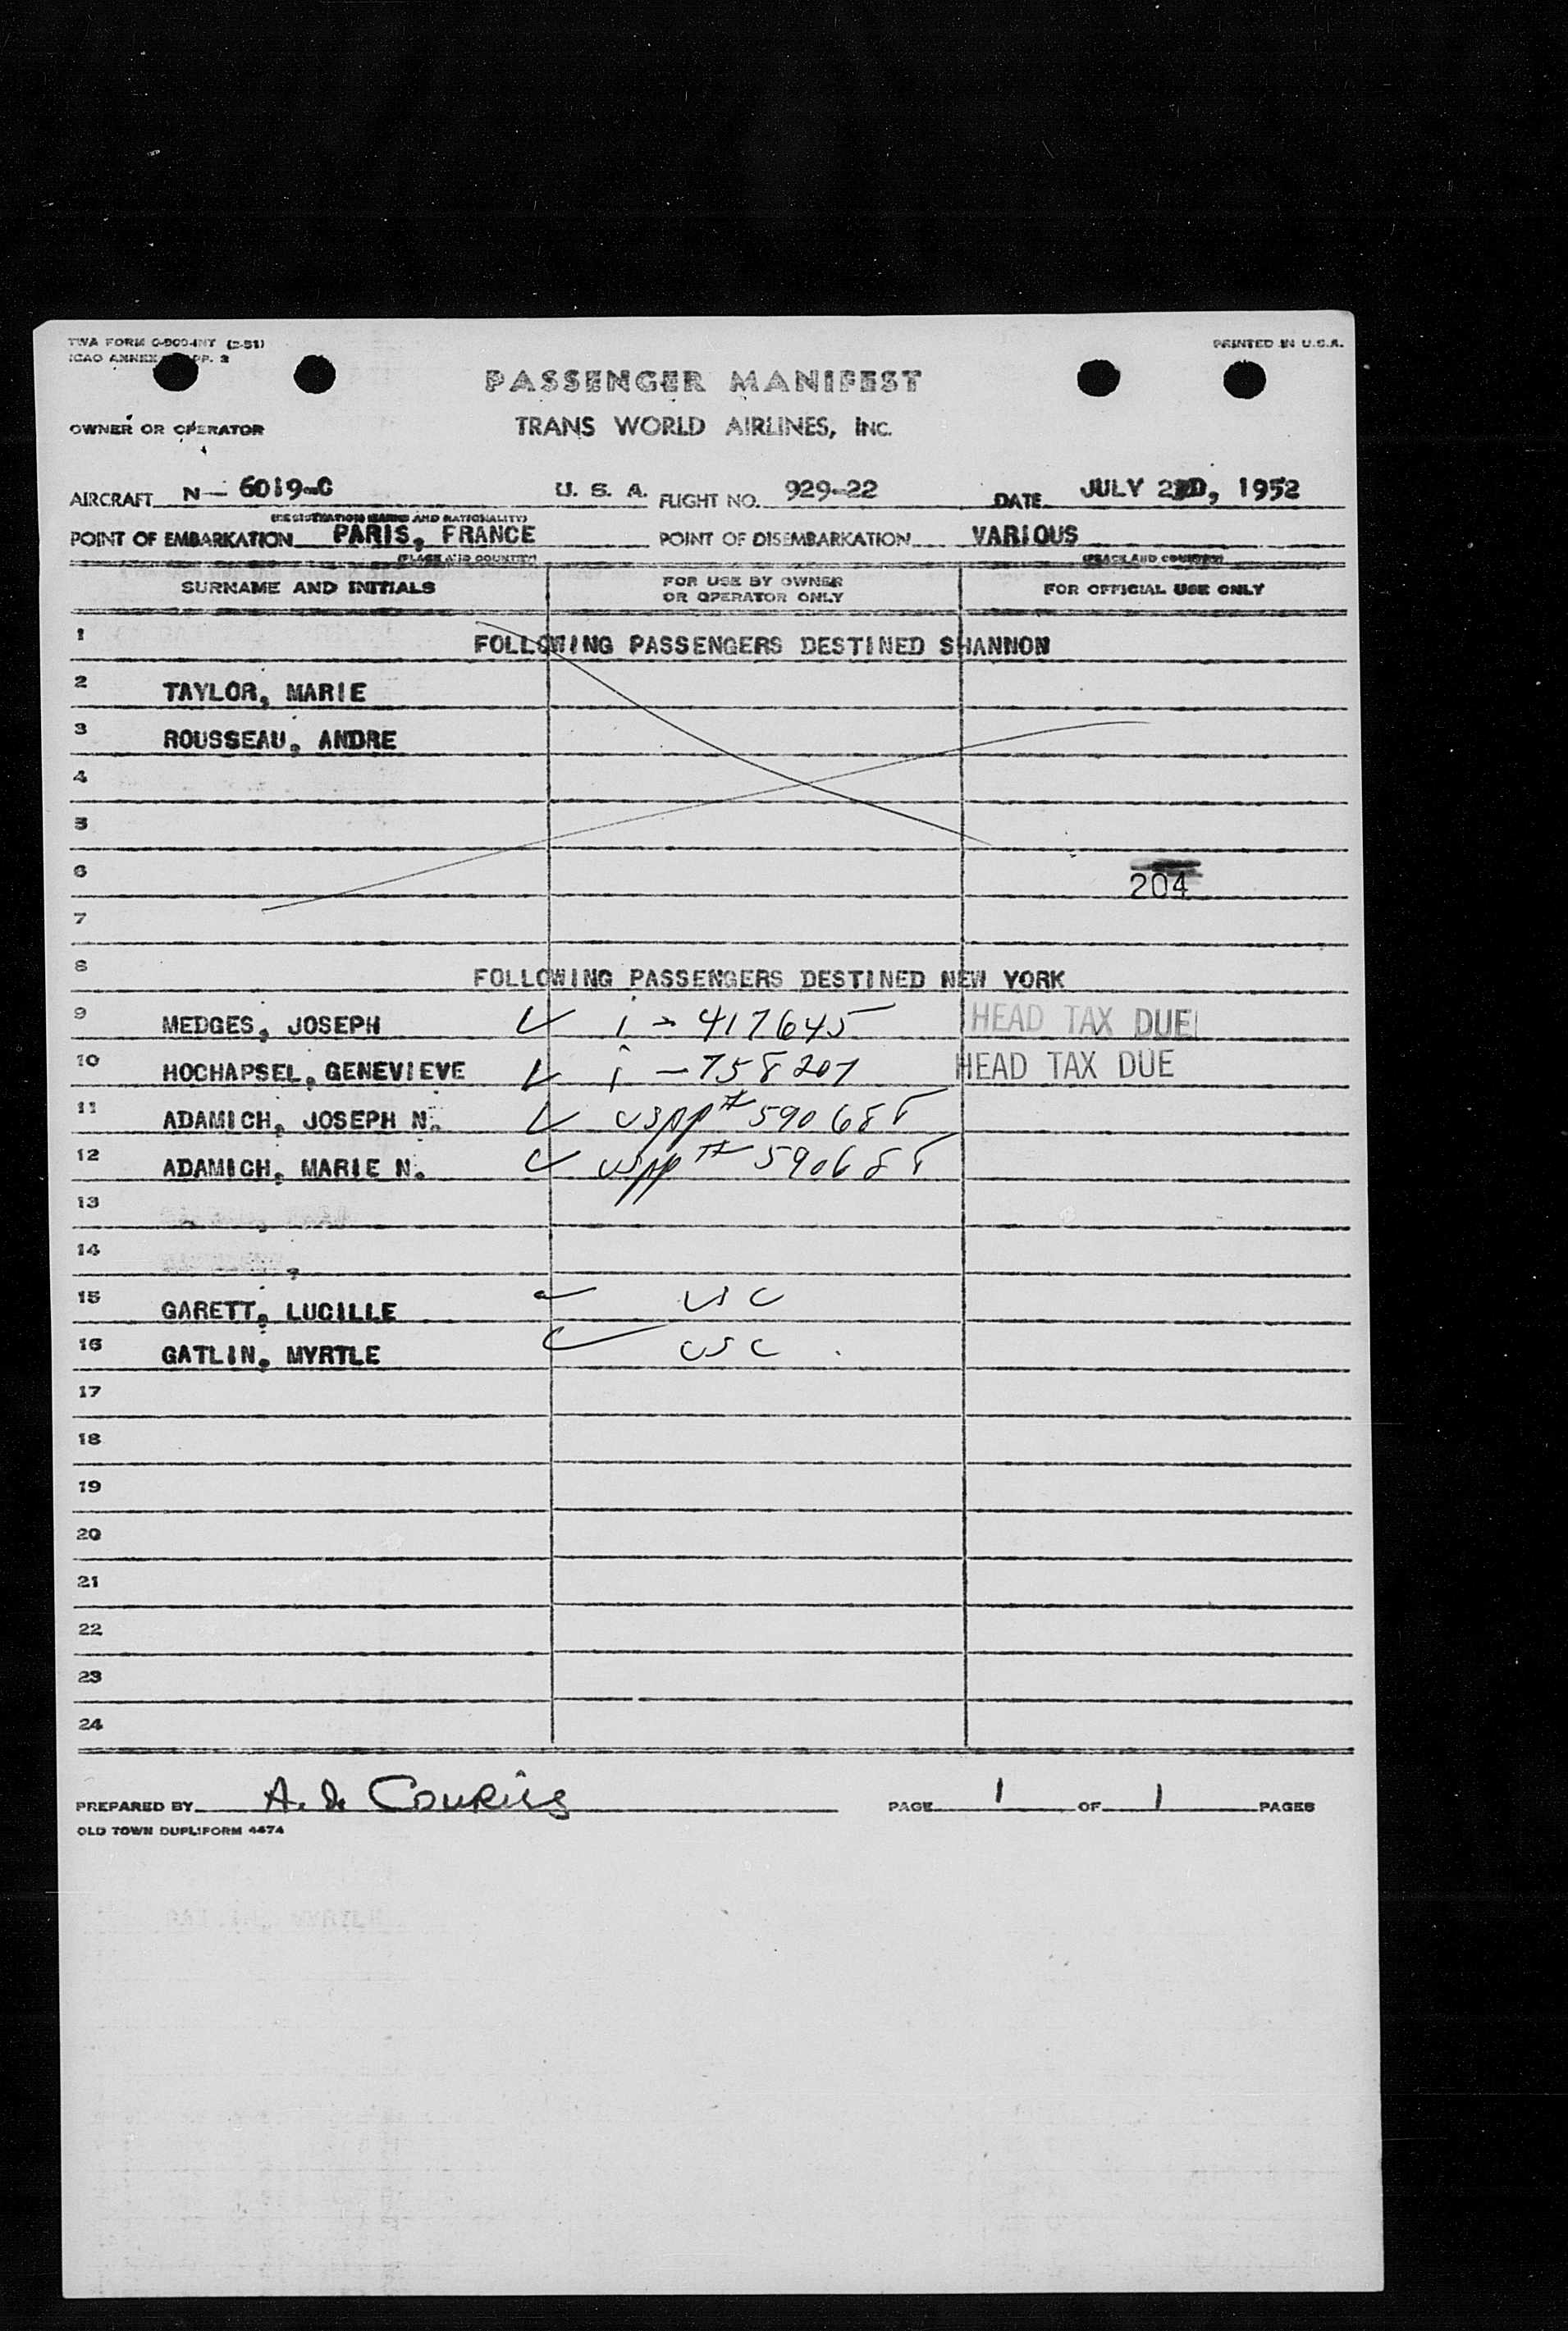 TWA FORM O-900-INT (2-51)
PRINTED IN U.S.A.
ICAO ANNEX PP. 2
PASSENGER MANIFEST
OWNER OR OPERATOR TRANS WORLD AIRLINES, INC.
AIRCRAFT N- 6019-C U. S. A. FLIGHT NO. 929-22 DATE JULY 22D, 1952
(REGISTRATION MARKS AND NATIONALITY)
POINT OF EMBARKATION PARIS, FRANCE POINT OF DISEMBARKATION VARIOUS
(PLACE AND COUNTRY) (PLACE AND COUNTRY)
SURNAME AND INITIALS FOR USE BY OWNER OR OPERATOR ONLY FOR OFFICIAL USE ONLY
1 FOLLOWING PASSENGERS DESTINED SHANNON
2 TAYLOR, MARIE
3 ROUSSEAU, ANDRE
4
5
6 204
7
8 FOLLOWING PASSENGERS DESTINED NEW YORK
9 MEDGES, JOSEPH i - 417645 HEAD TAX DUE
10 HOCHAPSEL, GENEVIEVE i - 758207 HEAD TAX DUE
11 ADAMICH, JOSEPH N. uspp# 590688
12 ADAMICH, MARIE N. uspp# 590688
13
14
15 GARETT, LUCILLE USC
16 GATLIN, MYRTLE USC
17
18
19
20
21
22
23
24
PREPARED BY A. de PAGE 1 OF 1 PAGES
OLD TOWN DUPLIFORM 4474